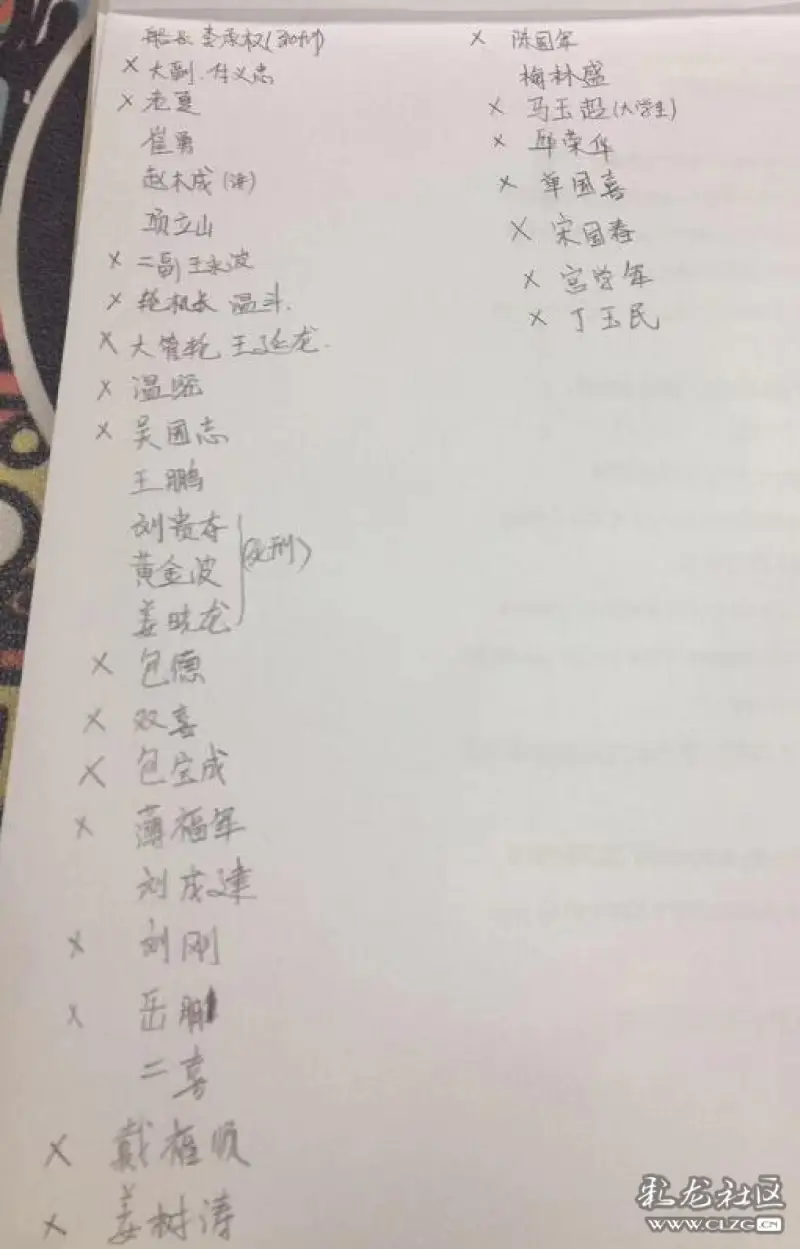 船长 李承权(死刑)
× 大副.付义忠
× 老夏
崔勇
赵木成(清)
项立山
× 二副 王永波
× 轮机长 温斗.
× 大管轮 王延龙.
× 温密
× 吴国志
王鹏
刘贵夺
黄金波
姜晓龙
(死刑)
× 包德
× 双喜
× 包宝成
× 薄福军
刘成建
× 刘刚
× 岳朋
二喜
× 戴福顺
× 姜树涛
× 陈国军
梅林盛
× 马玉超(大学生)
× 邱荣华
× 单国喜
× 宋国春
× 宫学军
× 丁玉民
彩龙社区
WWW.CLZG.CN